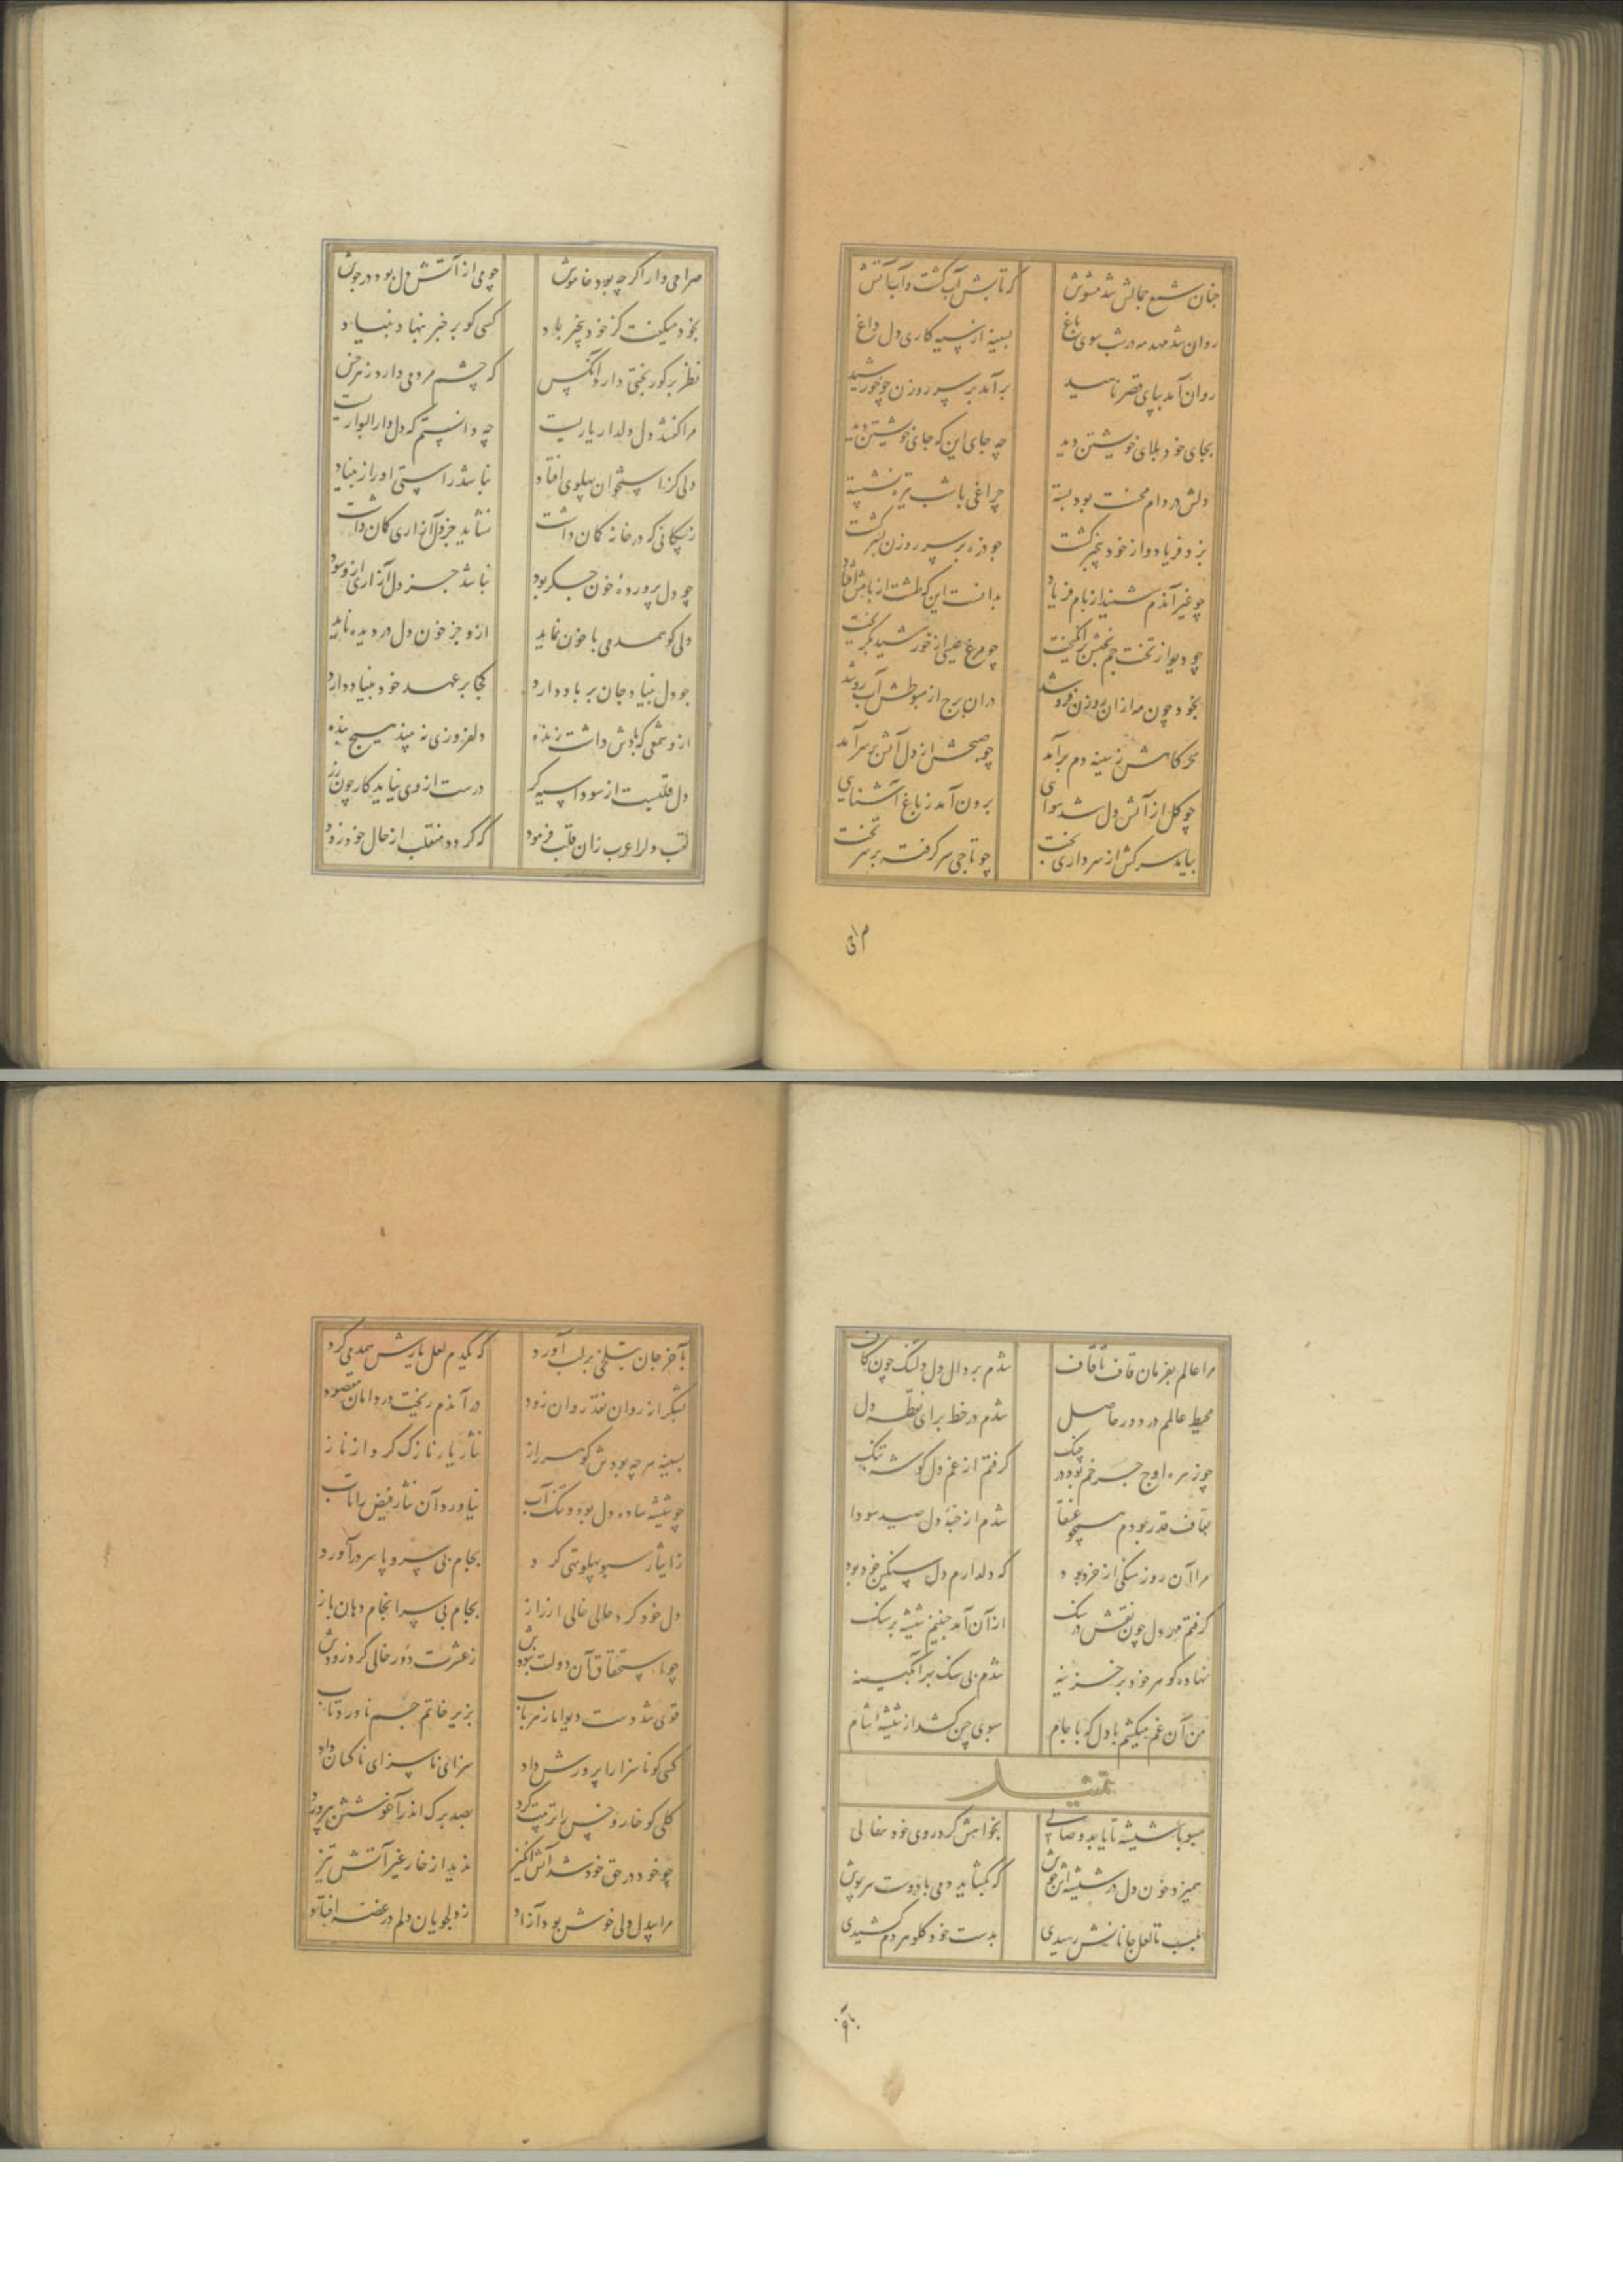 چنان شمع جمالش شد مشوش که تابش آب گشت و آب آتش
روان شد مهد مه در شب سوی باغ بسینه از سیه کاری دل داغ
روان آمد بپای قصر ناهید برآمد بر سر روزن چو خورشید
بجای خود بلای خویشتن دید چه جای این که جای خویشتن دید
دلش در دام محنت بود بسته چراغی با شب تیره نشسته
بزد فریاد و از خود بیخبر گشت چو ذره بر سر روزن بسر گشت
چو غیر آندم شنید از بام فریاد بدانست این که طشت از بامش افتاد
چو دیو از تخت جم بختش برانگیخت چو مرغ عیسی از خورشید بگریخت
بخود چون مه ازان روزن فرو شد دران برج از هبوطش آب رو شد
سحرکاهش ز سینه دم برآمد چو صبحش از دل آتش بر سر آمد
چو گل از آتش دل شد هوای برون آمد ز باغ آشنایی
بیامد سرکش از سرداری بخت چو تاجی سر گرفته بر سر تخت
صراحی
صراحی وار اگرچه بود خاموش چو می از آتش دل بود در جوش
بخود میگفت کز خود بیخبر باد کسی کو بر خبر بنهاد بنیاد
نظر بر کوربختی دارد آنکس که چشم مردمی دارد ز هر خس
مرا گفتند دل دلدار یاریست چه دانستم که دل دار البواریست
دلی کز استخوان پهلوی افتاد نباشد راستی او را ز بنیاد
ز پیکانی که در خانه کان داشت نشاید جز دل آزاری کان داشت
چو دل پرورده خون جگر بود نباشد جز دل آزاری ازو سود
دلی کو همدمی با خون نماید ازو جز خون دل در دیده ناید
چو دل بنیاد جان بر باد دارد کجا بر عهد خود بنیاد دارد
ازو شمعی که بادش داشت زنده دلفروزی نه بیند هیچ بنده
دل قلبیست از سودا سیه گر درست از وی نیاید کار چون زر
لقب دل را عرب زان قلب فرمود که گردد منقلب از حال خود زود
مرا عالم بفرمان قاف تا قاف شدم بر دال دل دلتنگ چون کاف
محیط عالمم در دور حاصل شدم در خط برای نقطه دل
چو زهره اوج چرخم بود در چنگ گرفتم از غم دل گوشه تنگ
بقاف قدر بودم همچو عنقا شدم از حبه دل صید سودا
مرا آن روز سنگی از خرد بود که دلدارم دل سنگین خود بود
گرفتم مهر دل چون نقش در سنگ ازآن آمد چنینم شیشه بر سنگ
نهاده گوهر خود بر خزینه شدم بی سنگ بر آبگینه
من آن غم میکشم با دل که با جام سبوی چن کشد از شیشه اشام
تمثیل
سبو با شیشه تا یابد وصالی بخواهش کرد روی خود سفالی
همیزد خون دل در شیشه اش جوش که بگشاید دمی با دوست سرپوش
بلب تا لعل جانانش رسیدی بدست خود گلو هر دم کشیدی
بآخر
بآخر جان بتلخی بر لب آورد که یکدم لعل یارش همدمی کرد
بشکر از روان نقد روان زود درآندم ریخت در دامان مقصود
بسینه هرچه بودش گوهر راز نثار یار نازک کرد از ناز
چو شیشه ساده دل بود و تنک آب نیاورد آن نثار فیض را تاب
ز ایثار سبو پهلو تهی کرد بجام بی سر و پا سر درآورد
دل خود کرد حالی خالی از راز بجام بی سرانجام دهان باز
چو استحقاق آن دولت نبودش ز عشرت دور خالی کرد زودش
قوی شد دست دیو اما ز هر باب بزیر خاتم جم ناورد تاب
کسی کو ناسزا را پرورش داد سزای ناسزای ناکسان داد
گلی کو خار و خس را تربیت کرد بصد برگ اندر آغوشش بپرورد
چو خود در حق خود شد آتش انگیز ندید از خار غیر آتش تیز
مرا بیدل دلی خوش بود و آزاد ز دلجویان دلم در غصه افتاد